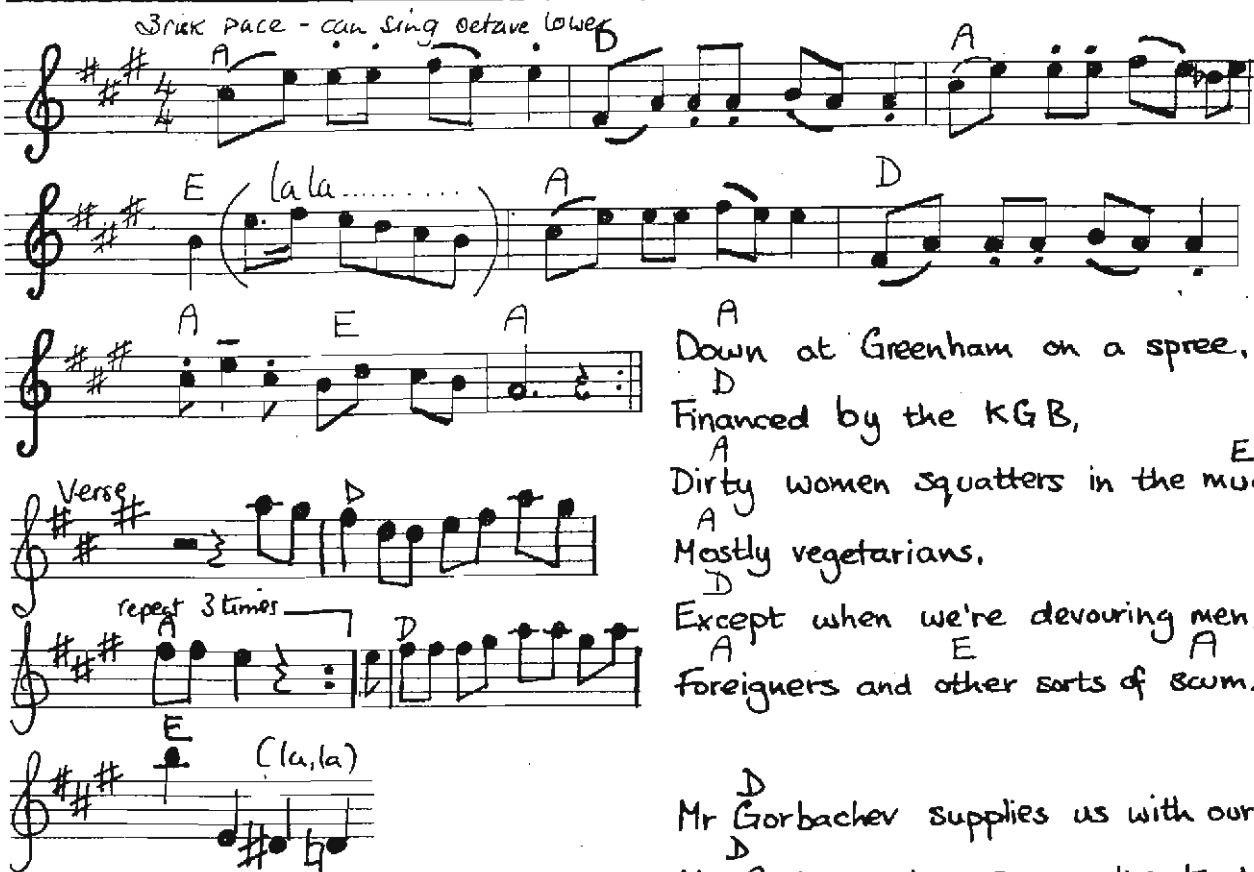 Brisk pace - can sing octave lower
A D A
E (la la..........) A D
A E A
Verse D
repeat 3 times
A D
E (la, la)
A
Down at Greenham on a spree,
D
Financed by the KGB,
A E
Dirty women squatters in the
A
Mostly vegetarians,
D
Except when we're devouring men,
A E A
Foreigners and other sorts of scum.
D
Mr Gorbachev supplies us with our
D